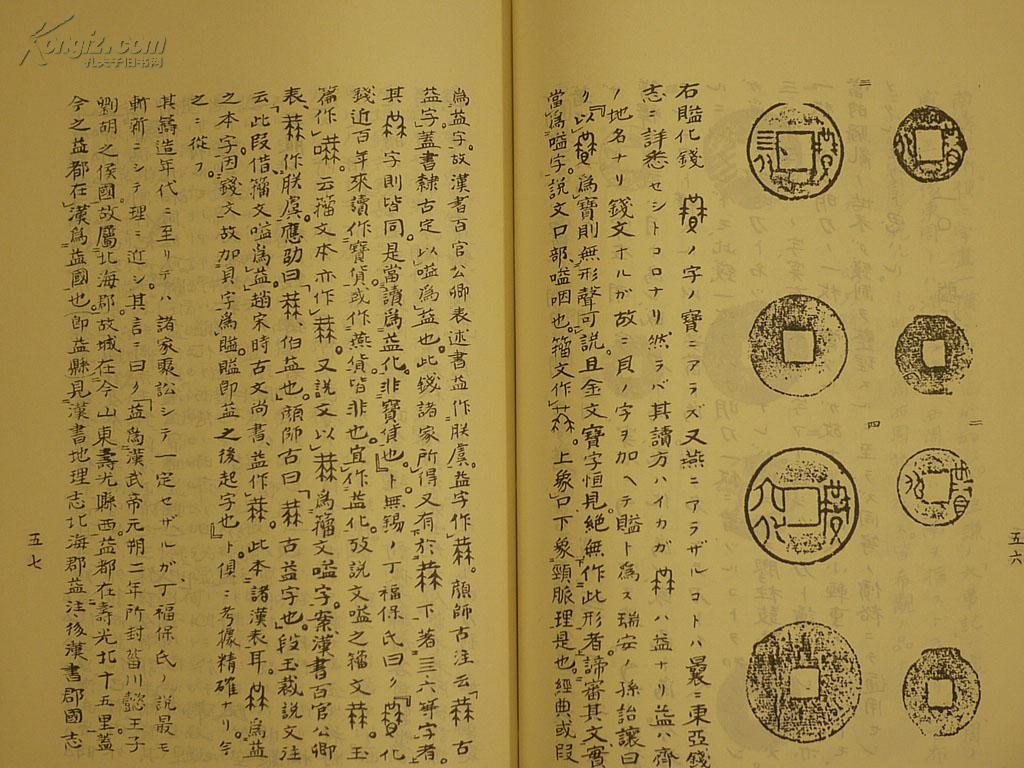 Kongfz.com
孔夫子旧书网
一
二
三
四
右賹化錢ノ字ノ寶ニアラズ又燕ニアラザルコトハ曩ニ東亞錢
志ニ詳悉セシトコロナリ然ラバ其讀方ハイカガハ益ナリ益ハ齊
ノ地名ナリ錢文ナルガ故ニ貝ノ字ヲ加ヘテ賹ト為ス瑞安ノ孫詒讓曰
ク『以為寶則無形聲可說且金文寶字恒見絕無作此形者諦審其文實
當為嗌字說文口部嗌咽也籀文作上象口下象頸脈理是也經典或叚
五六
為益字故漢書百官公卿表述書益作朕虞益字作顏師古注云「古
益字」蓋書隸古定以嗌為益也此錢諸家所得又有於下著三六等字者
其字則皆同是當讀為益化非寶貨也』ト無錫ノ丁福保氏曰ク『化
錢近百年來讀作寶貨或作燕貨皆非也宜作益化攷說文嗌之籀文玉
篇作云籀文本亦作又說文以為籀文嗌字案漢書百官公卿
表、作朕虞應劭曰「、伯益也」顏師古曰「古益字也」段玉裁說文注
云「此叚借籀文嗌為益」趙宋時古文尚書益作此本諸漢表耳為益
之本字因錢文故加貝字為賹賹即益之後起字也』ト俱ニ考據精確ナリ今
之ニ從フ
其鑄造年代ニ至リテハ諸家聚訟シテ一定セザルガ丁福保氏ノ說最モ
斬新ニシテ理ニ近シ其言ニ曰ク「益為漢武帝元朔二年所封菑川懿王子
劉胡之侯國故屬北海郡故城在今山東壽光縣西益都在壽光北十五里蓋
今之益都在漢為益國也即益縣見漢書地理志北海郡益注後漢書郡國志
五七